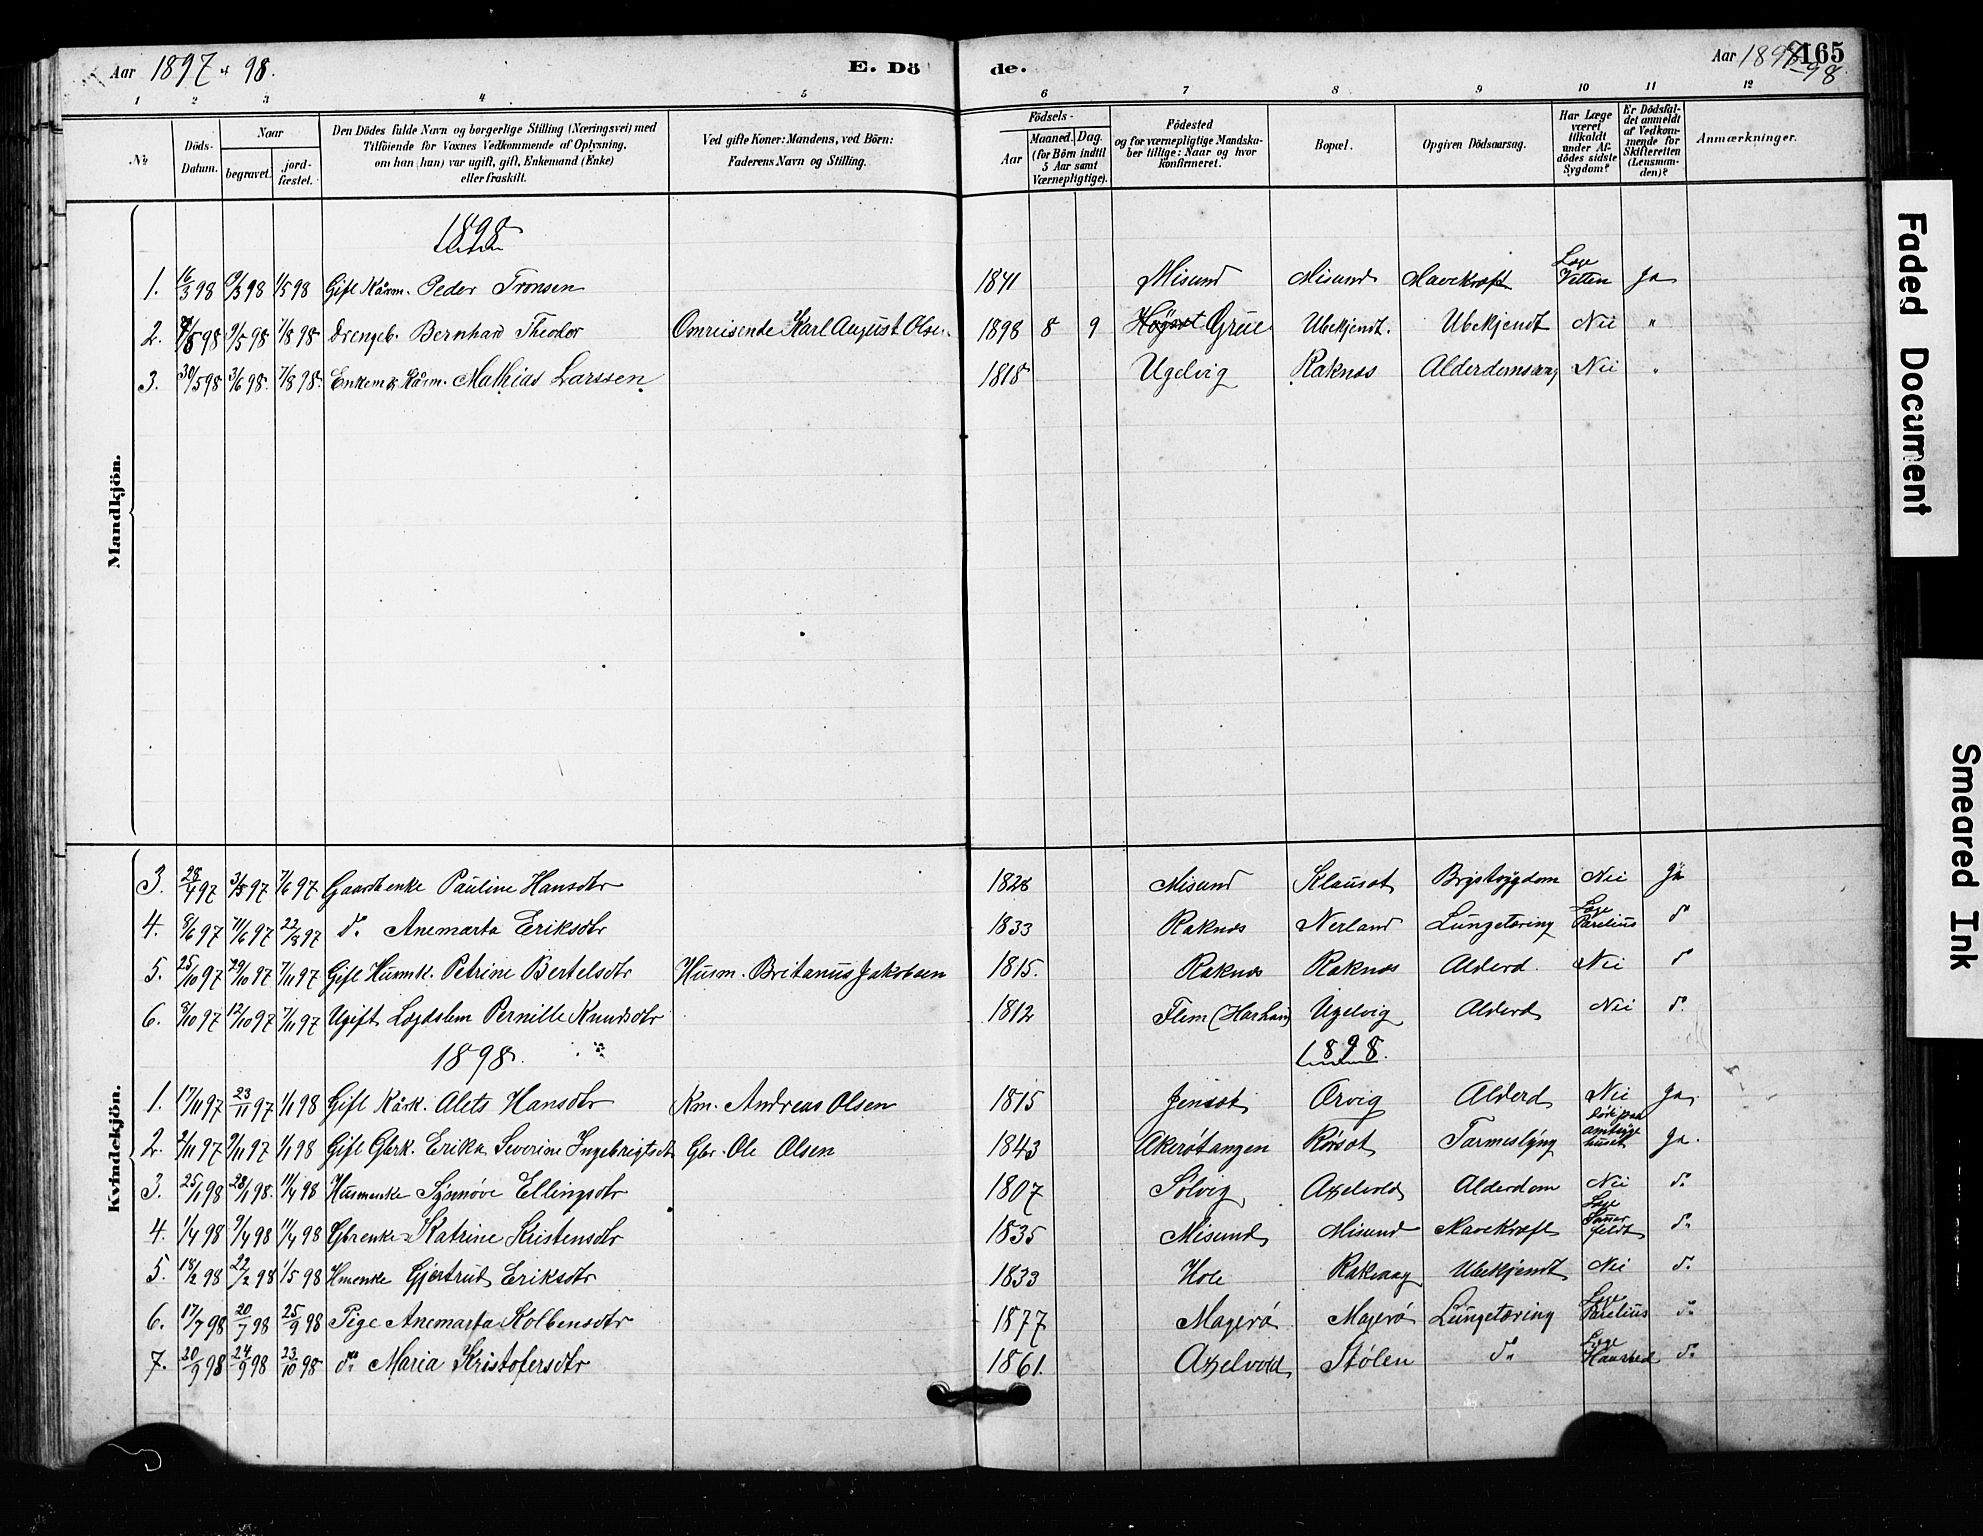 Aar 1897 & 98.
E. Dö
de.
Aar 1897-98
165
1 2 3 4 5 6 7 8 9 10 11 12
No
Döds-Datum.
Naar
begravet.
jord-fæstet.
Den Dödes fulde Navn og borgerlige Stilling (Næringsvei) med
Tilföiende for Voxnes Vedkommende af Oplysning,
om han (hun) var ugift, gift, Enkemand (Enke)
eller fraskilt.
Ved gifte Koner: Mandens, ved Börn:
Faderens Navn og Stilling.
Födsels-
Aar
Maaned. Dag.
(for Börn indtil
5 Aar samt
Værnepligtige).
Födested
og for værnepligtige Mandska-
ber tillige: Naar og hvor
konfirmeret.
Bopæl.
Opgiven Dödsaarsag.
Har Læge
været
tilkaldt
under Af-
dödes sidste
Sygdom?
Er Dödsfal-
det anmeldt
af Vedkom-
mende for
Skifteretten
(Lensman-
den)?
Anmærkninger.
Mandkjön.
1898
1. 16/3 98 19/3 98 1/5 98 Gift Kårm. Peder Tronsen 1841 Misund Misund Mavekræft Læge Vetten Ja
2. 7/5 98 9/5 98 7/8 98 Drengeb. Bernhard Theodor Omreisende Karl August Olsen 1898 8 9 Grue Ubekjendt. Ubekjendt Nei "
3. 30/5 98 3/6 98. 7/8 98. Enkem. Kårm. Mathias Larssen 1818 Ugelvig Raknæs Alderdomssvag Nei "
Kvindekjön.
3. 28/4 97 3/5 97 7/6 97 Gaardenke Pauline Hansdtr 1828 Misund Klauset Brystsygdom Nei Ja
4. 8/6 97 11/6 97 22/8 97 do Anemarta Eriksdtr 1833 Raknæs Nerland Lungetæring Læge Parelius do
5. 25/10 97 29/10 97 7/11 97 Gift Husmk. Petrine Bertelsdtr Husm. Britanus Jakobsen 1815. Raknæs Raknæs Alderd. Nei do
6. 8/10 97 12/10 97 7/11 97 Ugift Lægdslem Pernille Knudsdtr 1812 Flem (Harham) Ugelvig Alderd Nei do
1898. 1898.
1. 17/11 97 23/11 97 1/1 98 Gift Kårk. Alets Hansdtr Km. Andreas Olsen 1815 Jenset Orvig Alderd Nei Ja
2. 2/11 97 9/11 97 1/1 98 Gift Gbrk. Erika Severine Ingebrigtsdt Gbr. Ole Olsen 1843 Akerötangen Rörset Tarmeslyng döde paa amtsygehuset Ja.
3. 25/1 98 28/1 98. 11/4 98 Husmenke Synnöve Ellingsdtr 1807 Solvig Axelvold Alderdom Nei do
4. 1/4 98 9/4 98 11/4 98 Gbrenke Katrine Kristensdtr 1835 Misund Misund Mavekræft Læge do
5. 18/2 98 22/2 98 1/5 98 Hmenke Gjertrud Eriksdtr 1833 Hole Rakvaag Ubekjendt Nei do
6. 17/7 98 20/7 98 25/9 98 Pige Anemarta Kolbensdtr 1877 Magerö Magerö Lungetæring Læge Parelius do
7. 20/9 98 24/9 98 23/10 98 do Maria Kristofersdtr 1861. Axelvold Stölen do Læge do
Faded Document
Smeared Ink